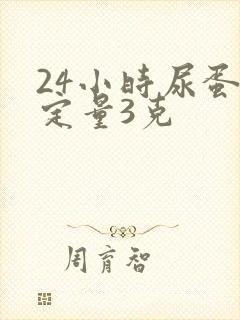 24小時尿蛋
定量3克
周育智